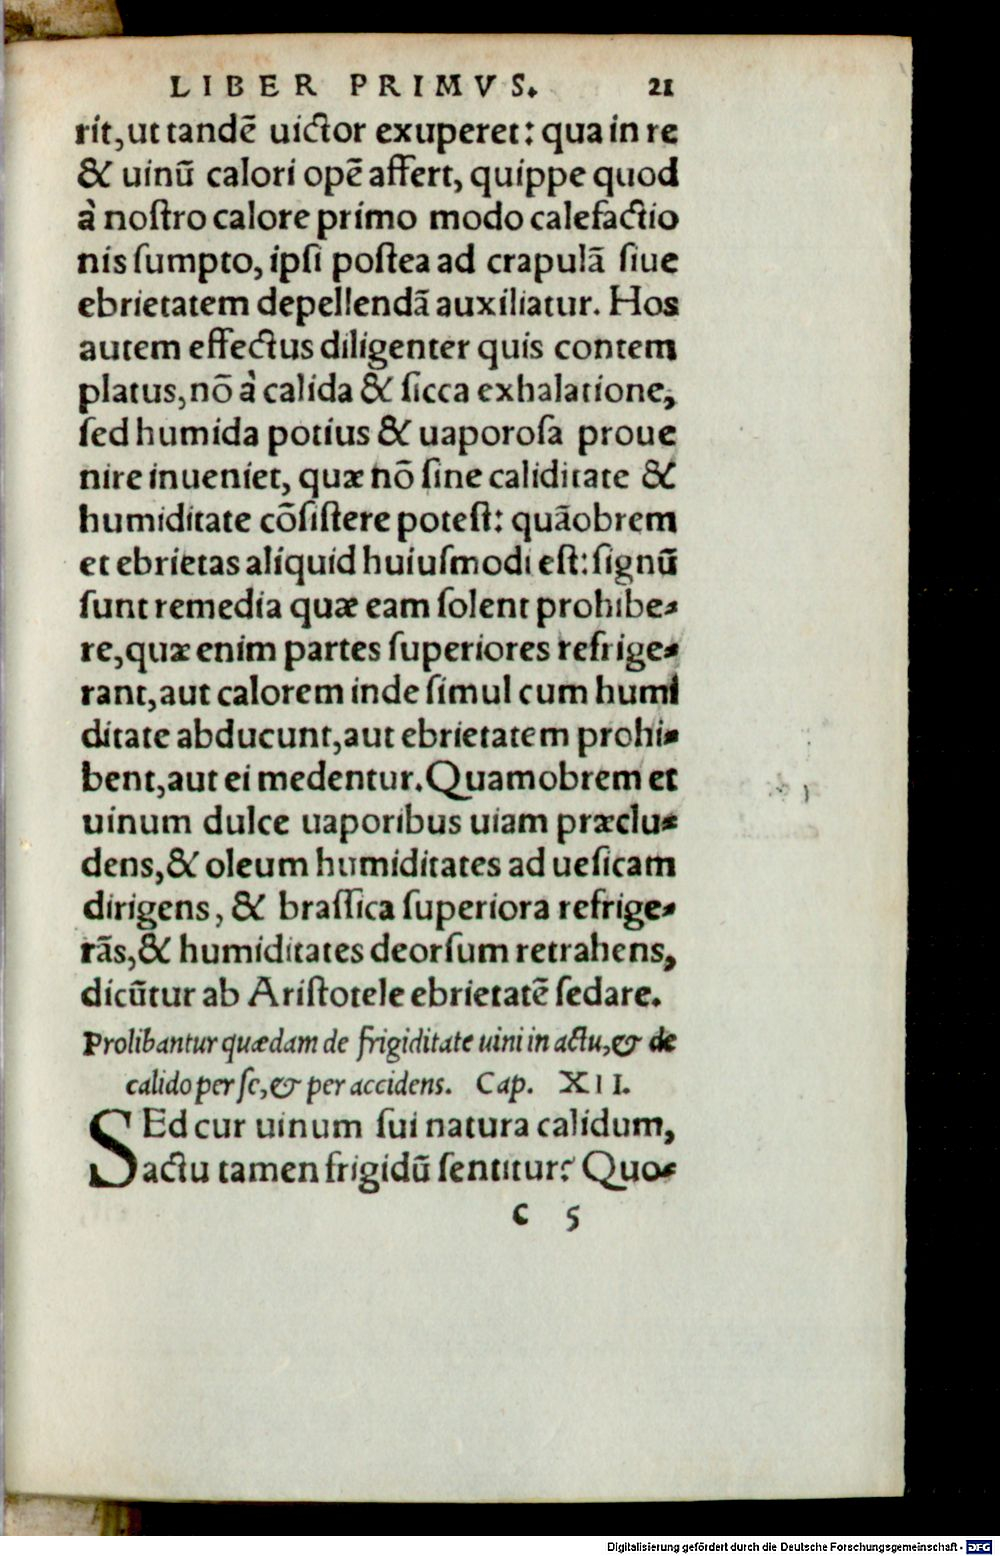 LIBER PRIMVS. 21
rit, ut tandē uictor exuperet: qua in re
& uinū calori opē affert, quippe quod
à noſtro calore primo modo calefactio
nis ſumpto, ipſi poſtea ad crapulā ſiue
ebrietatem depellendā auxiliatur. Hos
autem effectus diligenter quis contem
platus, nō à calida & ſicca exhalatione,
ſed humida potius & uaporoſa proue
nire inueniet, quæ nō ſine caliditate &
humiditate cōſiſtere poteſt: quāobrem
et ebrietas aliquid huiuſmodi eſt: ſignū
ſunt remedia quæ eam ſolent prohibe-
re, quæ enim partes ſuperiores refrige-
rant, aut calorem inde ſimul cum humi
ditate abducunt, aut ebrietatem prohi-
bent, aut ei medentur. Quamobrem et
uinum dulce uaporibus uiam præclu-
dens, & oleum humiditates ad ueſicam
dirigens, & braſſica ſuperiora refrige-
rās, & humiditates deorſum retrahens,
dicūtur ab Ariſtotele ebrietatē ſedare.
Prolibantur quædam de frigiditate uini in actu, & de
calido per ſe, & per accidens. Cap. XII.
SEd cur uinum ſui natura calidum,
actu tamen frigidū ſentitur? Quo-
c 5
Digitalisierung gefördert durch die Deutsche Forschungsgemeinschaft - DFG